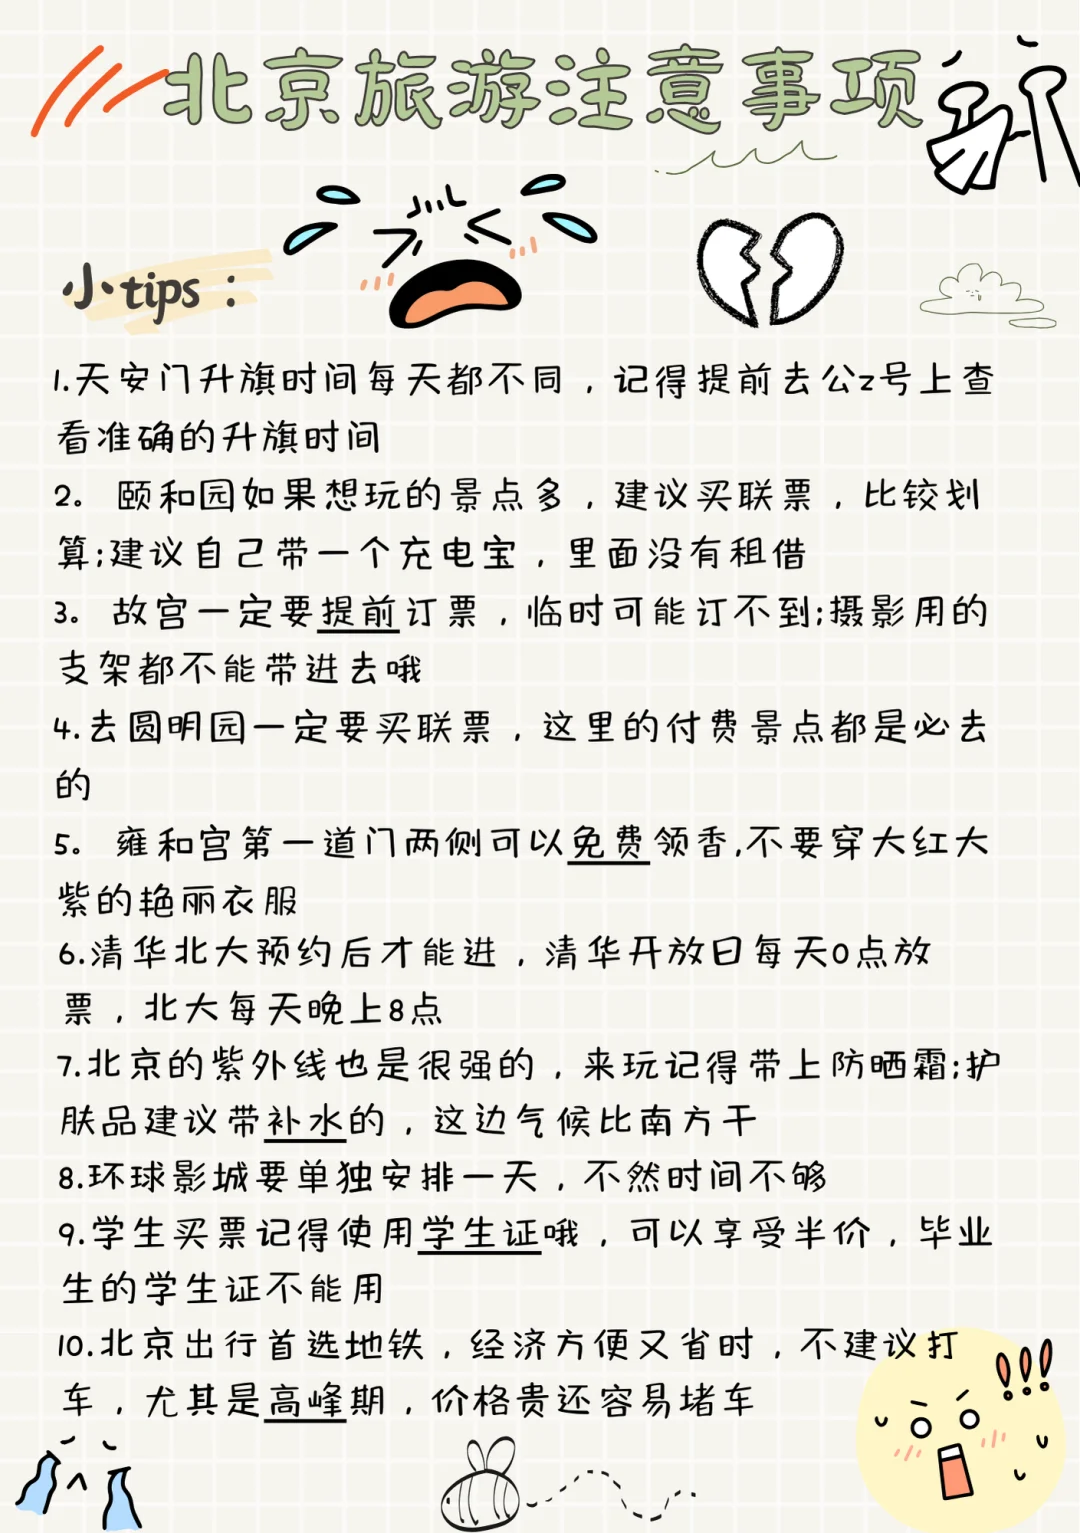 北京旅游注意事项
小tips：
1.天安门升旗时间每天都不同，记得提前去公z号上查
看准确的升旗时间
2。颐和园如果想玩的景点多，建议买联票，比较划
算;建议自己带一个充电宝，里面没有租借
3。故宫一定要提前订票，临时可能订不到;摄影用的
支架都不能带进去哦
4.去圆明园一定要买联票，这里的付费景点都是必去
的
5。雍和宫第一道门两侧可以免费领香,不要穿大红大
紫的艳丽衣服
6.清华北大预约后才能进，清华开放日每天0点放
票，北大每天晚上8点
7.北京的紫外线也是很强的，来玩记得带上防晒霜;护
肤品建议带补水的，这边气候比南方干
8.环球影城要单独安排一天，不然时间不够
9.学生买票记得使用学生证哦，可以享受半价，毕业
生的学生证不能用
10.北京出行首选地铁，经济方便又省时，不建议打
车，尤其是高峰期，价格贵还容易堵车